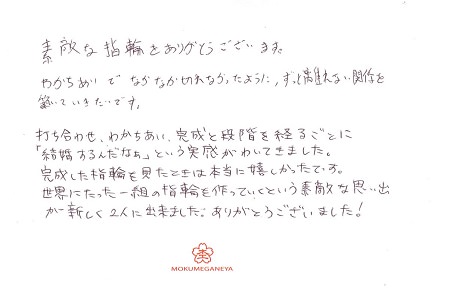 素敵な指輪をありがとうございます。
わかちあいでなかなか切れなかったように、ずっと離れない関係を
築いていきたいです。
打ち合わせ、わかちあい、完成と段階を経るごとに
「結婚するんだなぁ」という実感がわいてきました。
完成した指輪を見たときは本当に嬉しかったです。
世界にたった一組の指輪を作っていくという素敵な思い出
が新しく2人に出来ました。ありがとうございました!
MOKUMEGANEYA